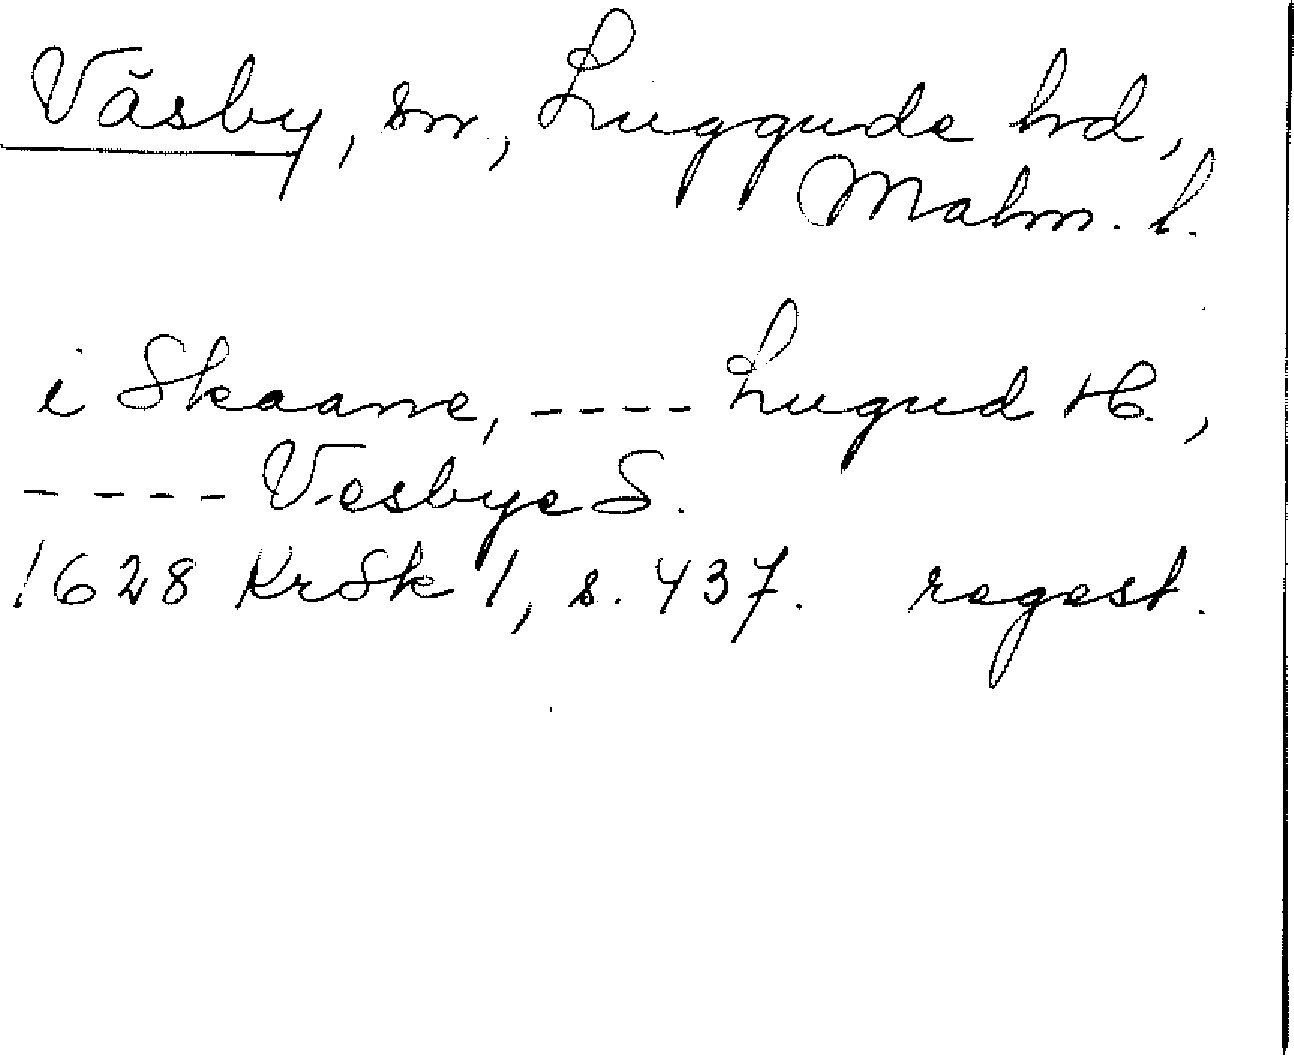 Väsby, sn., Luggude hd,
Malm. l.
i Skaane, ---- Lugud H.,
---- Vesbye S.
1628 KrSk 1, s. 437. regest.